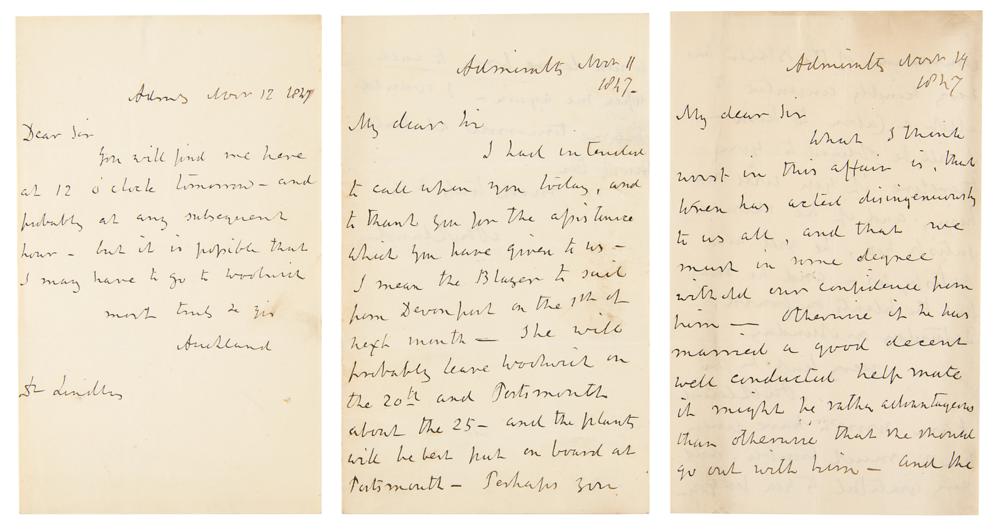 Admty Novr 12 1847
Dear Sir
You will find me here
at 12 o'clock tomorrow – and
probably at any subsequent
hour – but it is possible that
I may have to go to Woolwich
most truly
Auckland
Dr Lindley
Admiralty Novr 11
1847–
My dear Sir
I had intended
to call upon you today, and
to thank you for the assistance
which you have given to us –
I mean the Blazer to sail
from Devonport on the 1st of
next month – She will
probably leave Woolwich on
the 20th and Portsmouth
about the 25 – and the plants
will be best put on board at
Portsmouth – Perhaps you
Admiralty Novr 14
1847
My dear Sir
What I think
worst in this affair is, that
Wren has acted disingenuously
to us all, and that we
must in some degree
withold our confidence from
him – Otherwise if he has
married a good decent
well conducted help mate
it might be rather advantageous
than otherwise that she should
go out with him – and the